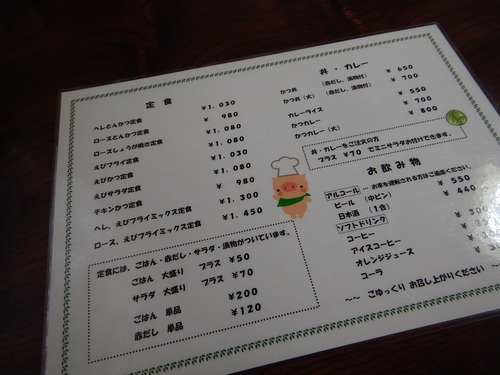 定 食
ヘレとんかつ定食 ¥1,030
ロースとんかつ定食 ¥ 980
ロースしょうが焼き定食 ¥1,080
えびフライ定食 ¥1,080
えびかつ定食 ¥1,030
えびサラダ定食 ¥1,080
チキンかつ定食 ¥ 980
ヘレ、えびフライミックス定食 ¥1,300
ロース、えびフライミックス定食 ¥1,450
定食には、ごはん・赤だし・サラダ・漬物がついています。
ごはん 大盛り プラス ¥50
サラダ 大盛り プラス ¥70
ごはん 単品 ¥200
赤だし 単品 ¥120
丼 ・ カレー
かつ丼 (赤だし、漬物付) ¥ 650
かつ丼(大) (赤だし、漬物付) ¥ 700
カレーライス ¥ 550
かつカレー ¥ 700
かつカレー(大) ¥ 800
丼・カレーをご注文の方
プラス ¥70 でミニサラダお付けできます。
お 飲 み 物
アルコール お車を運転される方はご遠慮ください。
ビール (中ビン) ¥ 550
日本酒 (1合) ¥ 440
ソフトドリンク
コーヒー
アイスコーヒー
オレンジジュース
コーラ
～～ ごゆっくり お召し上がりください ～